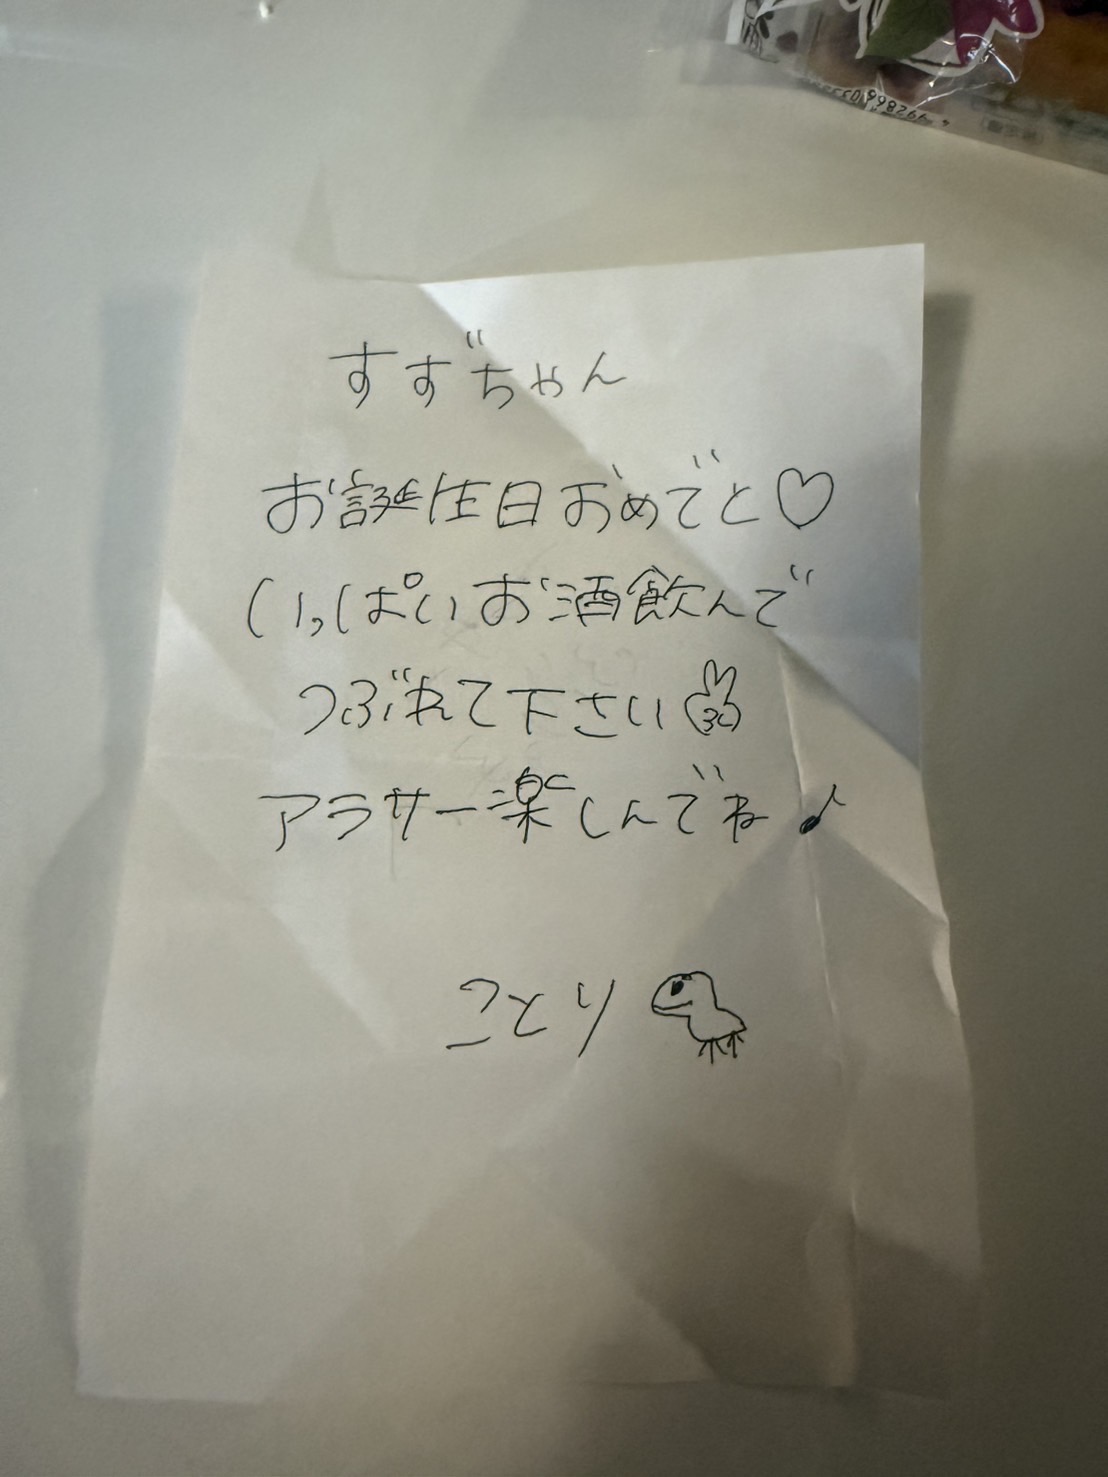 すずちゃん
お誕生日おめでと♡
いっぱいお酒飲んで
つぶれて下さい✌
アラサー楽しんでね♪
ことり